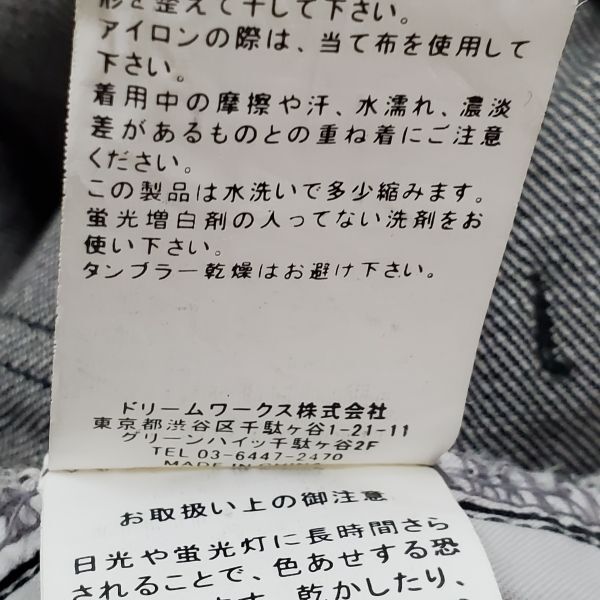 形を整えて干して下さい。
アイロンの際は、当て布を使用して
下さい。
着用中の摩擦や汗、水濡れ、濃淡
差があるものとの重ね着にご注意
ください。
この製品は水洗いで多少縮みます。
蛍光増白剤の入ってない洗剤をお
使い下さい。
タンブラー乾燥はお避け下さい。
ドリームワークス株式会社
東京都渋谷区千駄ヶ谷1-21-11
グリーンハイツ千駄ヶ谷2F
TEL 03-6447-2470
MADE IN CHINA
お取扱い上の御注意
日光や蛍光灯に長時間さら
されることで、色あせする恐
乾かしたり、